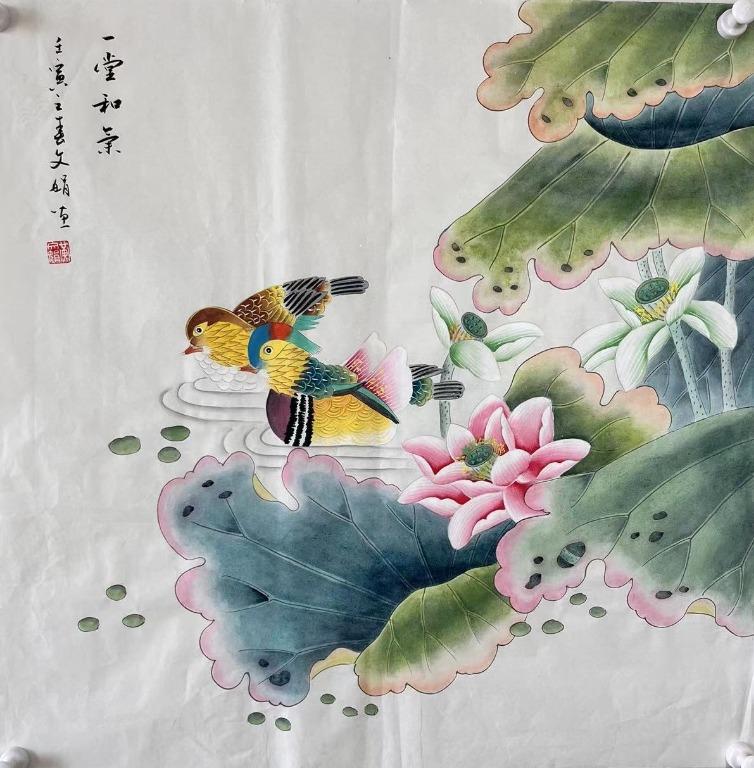 一堂和氣
壬寅之春文娟画